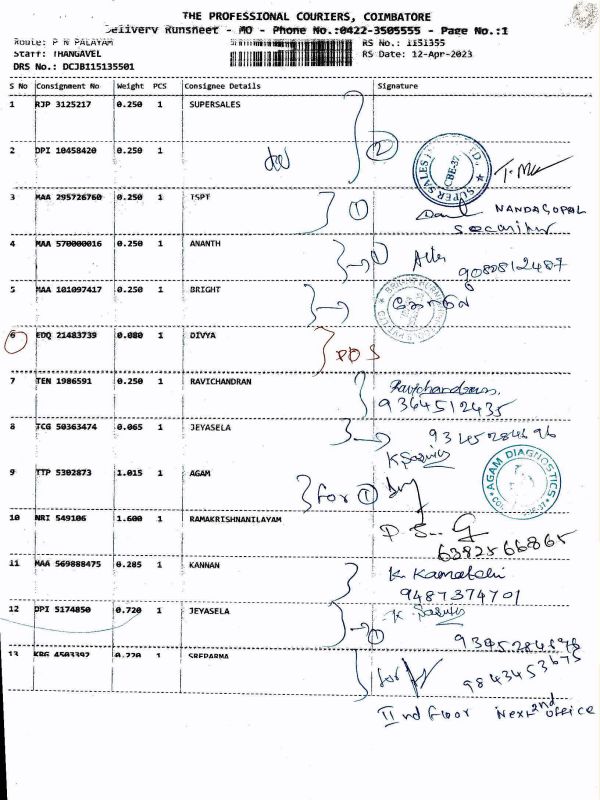 THE PROFESSIONAL COURIERS, COIMBATORE
Delivery Runsheet - MO - Phone No.:0422-3505555 - Page No.:1
Route: P N PALAYAM RS No.: 1151355
Staff: THANGAVEL RS Date: 12-Apr-2023
DRS No.: DCJB115135501
S No Consignment No Weight PCS Consignee Details Signature
1 RJP 3125217 0.250 1 SUPERSALES
2
2 DPI 10458420 0.250 1
SUPER SALES CBE-37
3 MAA 295726760 0.250 1 TSPT
1 NANDAGOPAL
4 MAA 570000016 0.250 1 ANANTH
9080812487
5 MAA 101097417 0.250 1 BRIGHT
6 EDQ 21483739 0.080 1 DIVYA
7 TEN 1986591 0.250 1 RAVICHANDRAN
Ravichandran
9364512435
8 TCG 50363474 0.065 1 JEYASELA
9 TTP 5302873 1.015 1 AGAM
for 1
AGAM DIAGNOSTICS
10 NRI 549106 1.600 1 RAMAKRISHNANILAYAM
6382566865
11 MAA 569888475 0.285 1 KANNAN
K. Kamatchi
9487374701
12 DPI 5174850 0.720 1 JEYASELA
1
13 KRG 4503397 0.220 1 SREEARMA
for 9843453675
II nd floor Next 2nd office